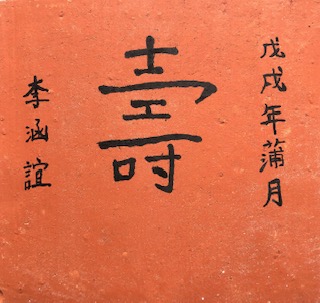 戊戌年蒲月
壽
李涵誼